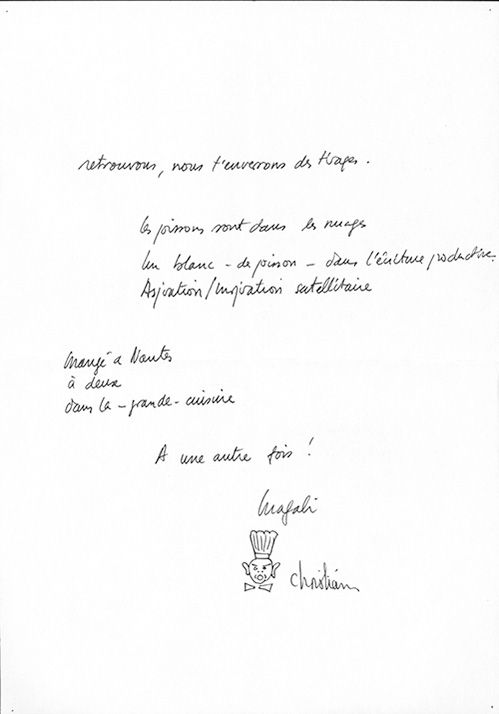 retrouvons, nous t'enverrons des tirages.
les poissons sont dans les nuages
Un blanc - de poisson - dans l'écriture productive.
Aspiration/Inspiration satellitaire
Mangé à Nantes
à deux
dans la - grande - cuisine
A une autre fois !
Magali
Christian